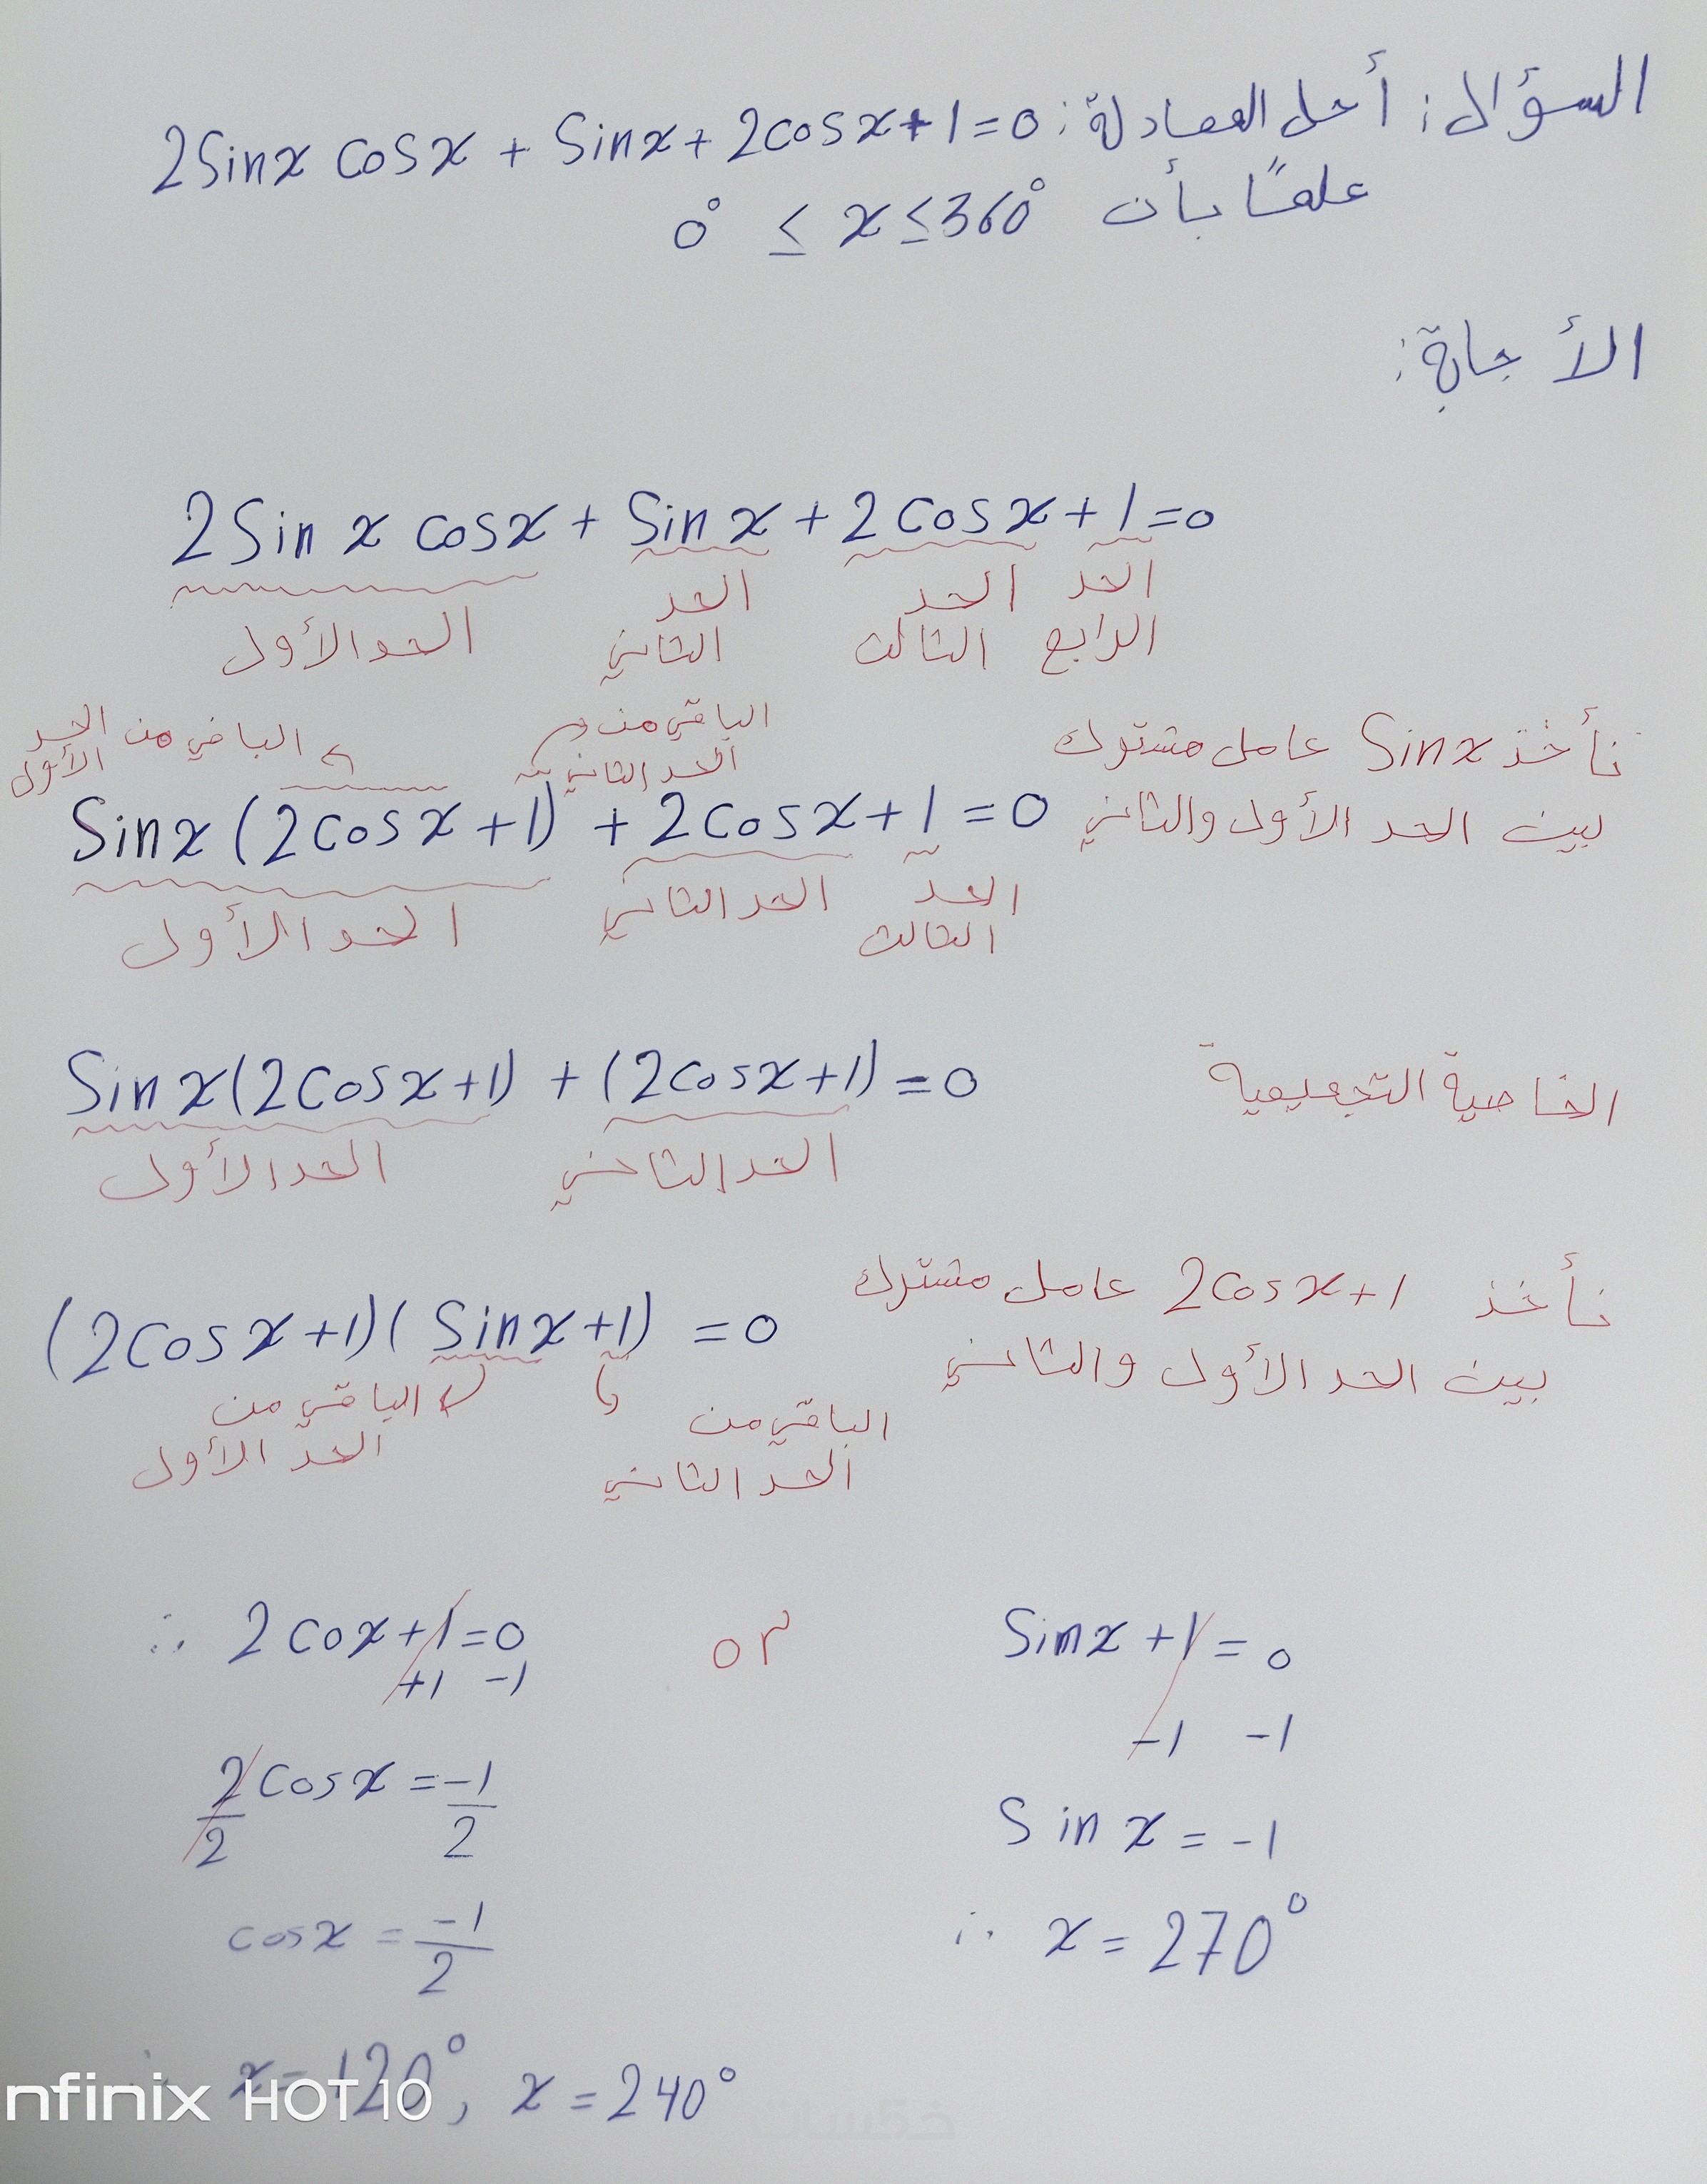 السؤال: أحل المعادلة: 2Sinx cosx + Sinx + 2cosx + 1 = 0
علمًا بأن 0° ≤ x ≤ 360°
الأجابة:
2Sin x cosx + Sin x + 2 cosx + 1 = 0
الحد الأول الحد الثاني الحد الثالث الحد الرابع
نأخذ Sinx عامل مشترك
بين الحد الأول والثاني
الباقي من الحد الأول
الباقي من الحد الثاني
Sinx (2cosx + 1) + 2cosx + 1 = 0
الحد الأول الحد الثاني الحد الثالث
الخاصية التجميعية
Sin x(2cosx+1) + (2cosx+1) = 0
الحد الأول الحد الثاني
نأخذ 2cosx+1 عامل مشترك
بين الحد الأول والثاني
(2cosx+1)(Sinx+1) = 0
الباقي من الحد الأول
الباقي من الحد الثاني
∴ 2cox+1=0 or Sinx+1=0
+1 -1 -1 -1
2cosx/2 = -1/2
Sin x = -1
cosx = -1/2
∴ x = 270°
∴ x = 120°, x = 240°
nfinix HOT 10